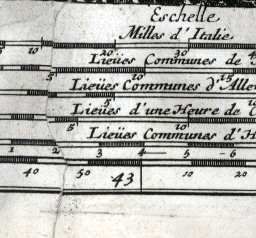 Eschelle
Milles d'Italie
5 10 20 30
Lieües Communes de
5 10 15
Lieües Communes d'Alle
5 10
Lieües d'une Heure de C
5 10
Lieües Communes d'H
1 2 3 4 5 6
40 50 43 10 20